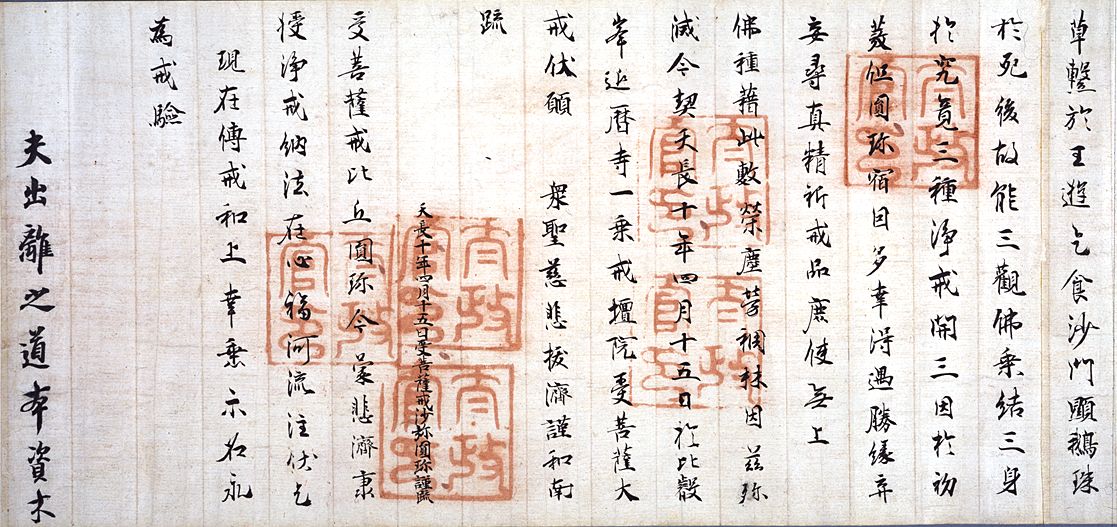 草繫於王遊乞食沙門顯鵝珠
於死後故能三觀佛乘結三身
於究竟三種淨戒開三因於初
發但圓珎宿因多幸得遇勝緣弃
妄尋真精祈戒品庶使無上
佛種藉此敷榮塵勞稠林因茲弥
滅今契天長十年四月十五日於比叡
峯延曆寺一乘戒壇院受菩薩大
戒伏願 衆聖慈悲拔濟謹和南
疏
天長十年四月十五日受菩薩戒沙弥圓珎謹疏
受菩薩戒比丘圓珎今蒙悲濟稟
授淨戒納法在心福河流注伏乞
現在傳戒和上幸垂示名永
為戒驗
夫出離之道本資木
太政官印
太政官印
太政官印
太政官印
太政官印
太政官印